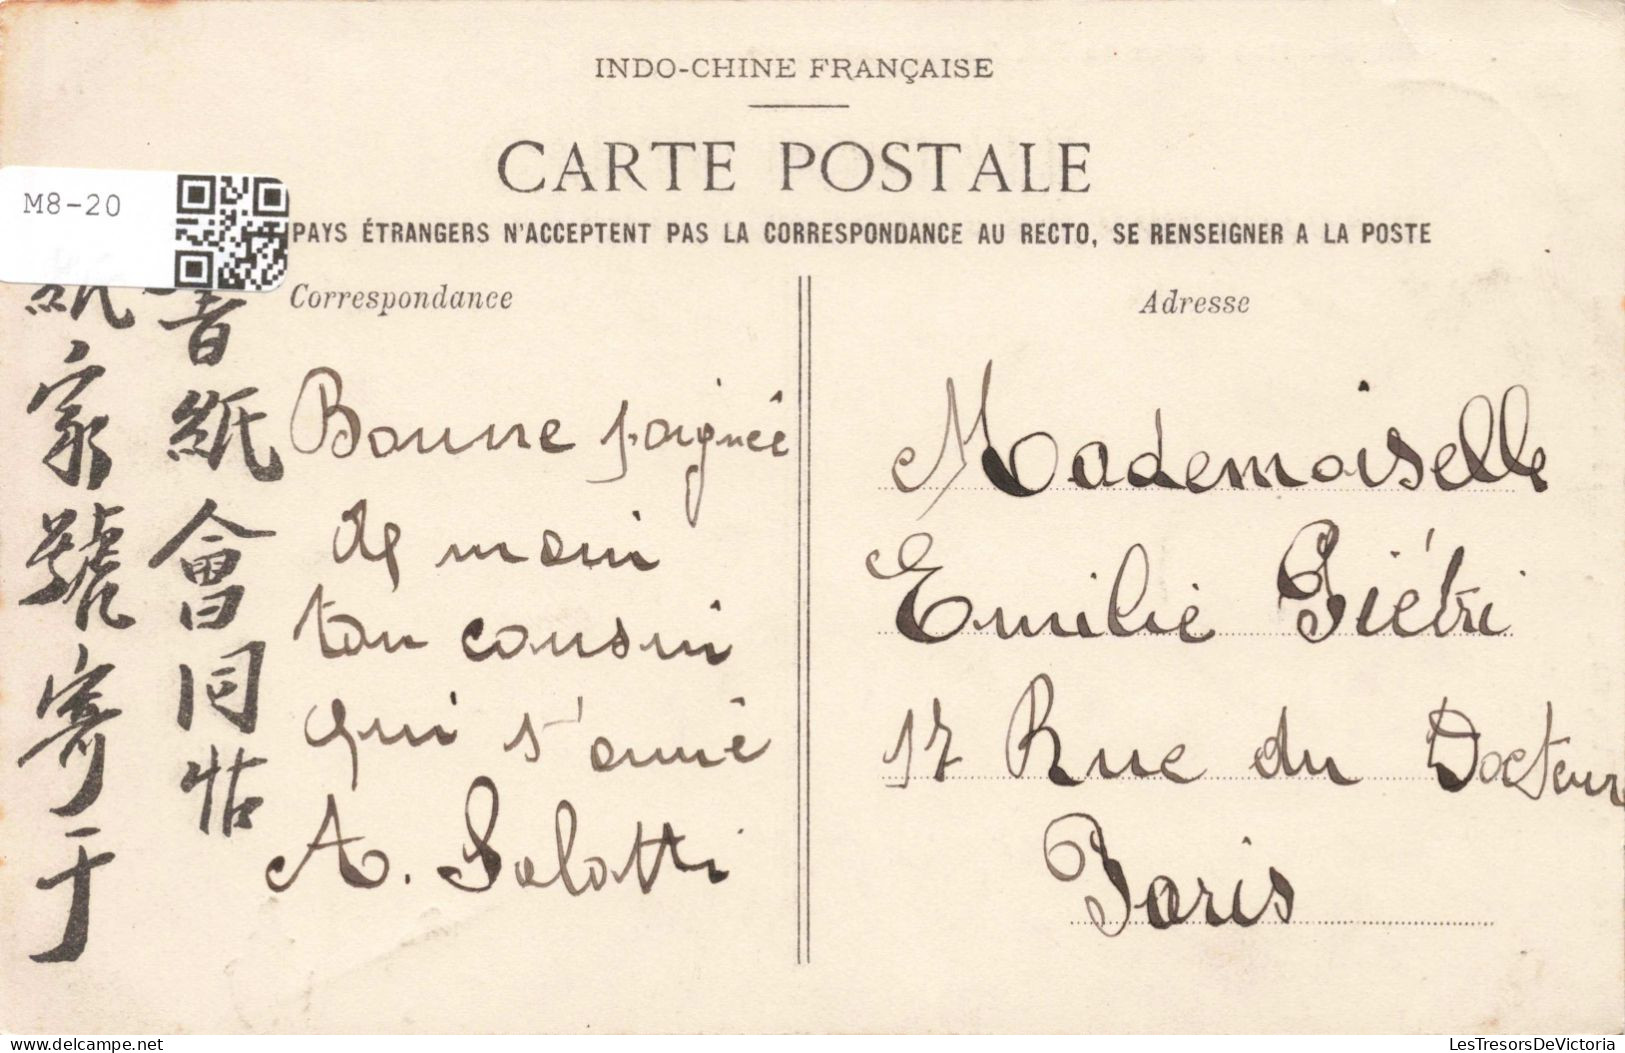 INDO-CHINE FRANÇAISE
CARTE POSTALE
M8-20
PAYS ÉTRANGERS N'ACCEPTENT PAS LA CORRESPONDANCE AU RECTO, SE RENSEIGNER A LA POSTE
Correspondance
書紙會同帖
紙家號寄于
Bonne poignée
de main
ton cousin
qui t'aime
A. Solatti
Adresse
Mademoiselle
Emilie Piétri
17 Rue du Docteur
Paris
delcampe.net
LesTresorsDeVictoria